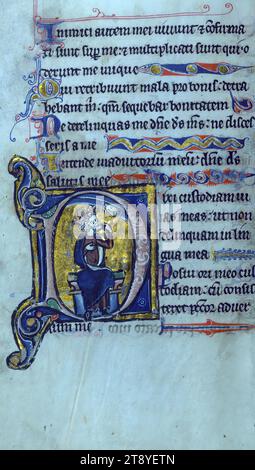 Inimici autem mei uiuunt ⁊ confirma
ti sunt sup me: ⁊ multiplicati sunt qui o
derunt me inique
Qui retribuunt mala pro bonis: detra
hebant m̄. qm̄ sequebar bonitatem
Ne derelinquas me dn̄e ds̄ ms̄: ne disces
seris a me
Intende in adiutoriū meū: dn̄e ds̄
salutis mee
Dixi custodiam ui
as meas: ut non
delinquam in lin
gua mea
Posui ori meo cus
todiam: cū consis
teret pccōr aduer
sum me
alamy - 2T8YETN